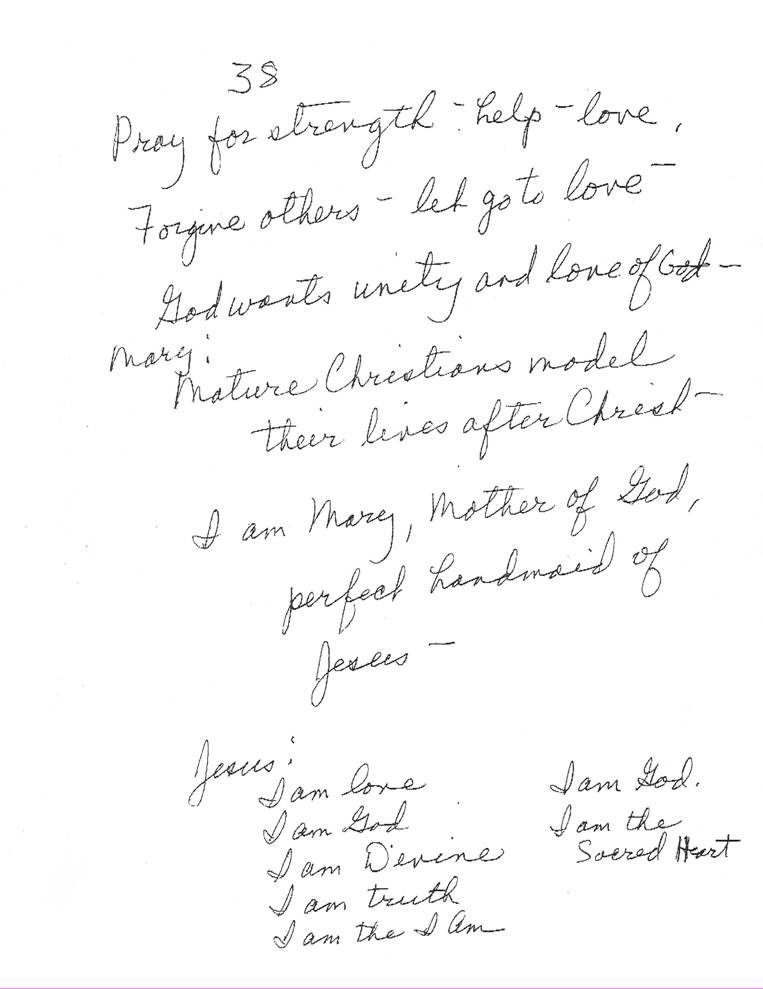 38
Pray for strength - help - love,
Forgive others - let go to love -
God wants unity and love of God -
Mary:
Mature Christians model
their lives after Christ -
I am Mary, Mother of God,
perfect handmaid of
Jesus -
Jesus:
I am love
I am God
I am Devine
I am truth
I am the I Am
I am God.
I am the
Sacred Heart